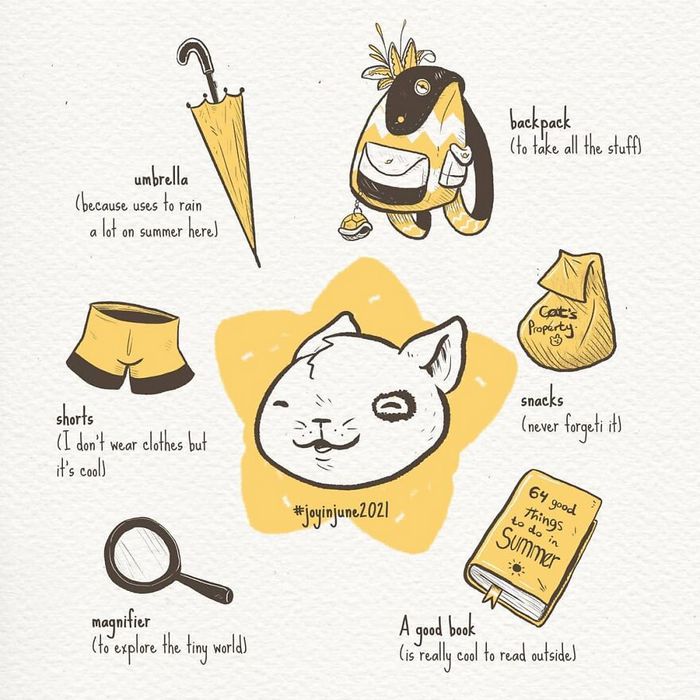 backpack
(to take all the stuff)
umbrella
(because uses to rain
a lot on summer here)
Cat's
Property
snacks
(never forgeti it)
shorts
(I don't wear clothes but
it's cool)
#joyinjune2021
64 good
things
to do in
Summer
magnifier
(to explore the tiny world)
A good book
(is really cool to read outside)